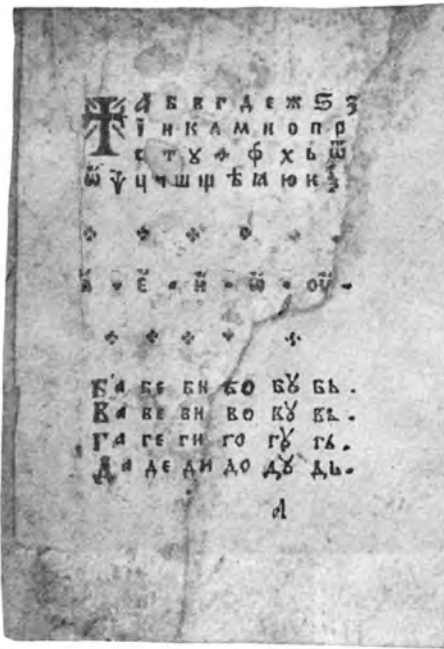 А б в г д е ж ѕ з
ї и к л м н о п р
с т ꙋ ф х ь ѿ
ѿ ѱ ц ч ш щ ѣ ꙗ ю к ѯ
а҆ · е҆ · и҆ · ѡ҆ · оу҆ ·
Ба бе би бо бꙋ бь .
Ва ве ви во вꙋ вь .
Га ге ги го гꙋ гь .
Да де ди до дꙋ дь .
А